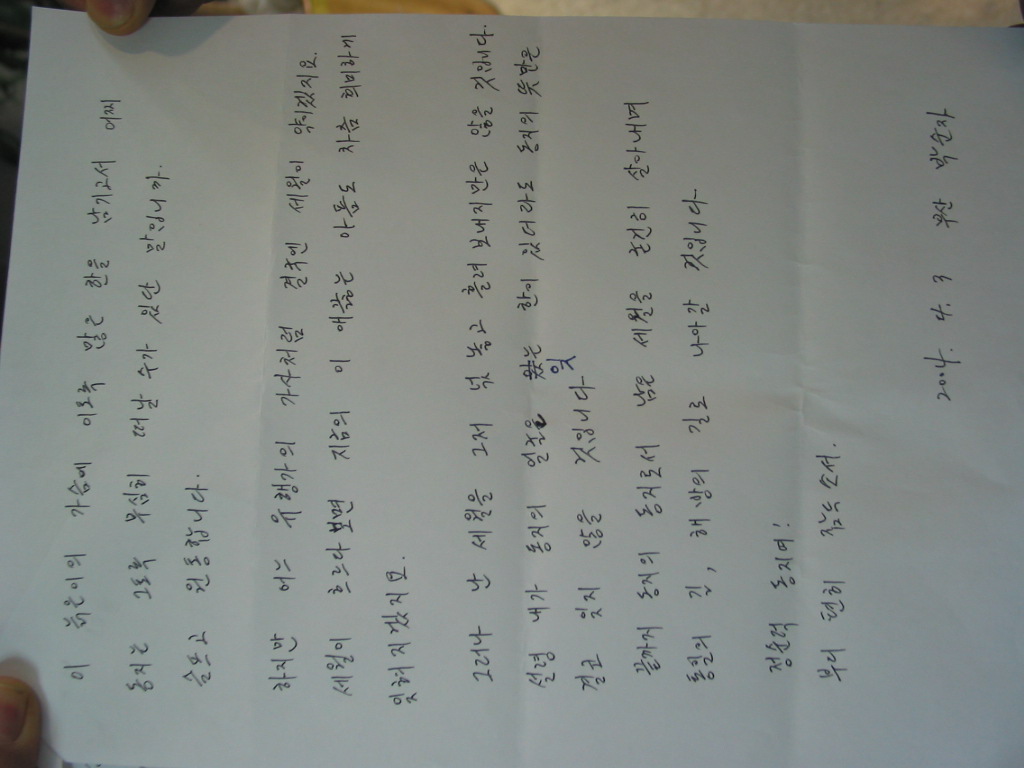 이 늙은이의 가슴에 이토록 많은 한을 남기고서 어찌
동지는 그토록 무심히 떠날 수가 있단 말입니까.
슬프고 원통합니다.
하지만 어느 유행가의 가사처럼 결국엔 세월이 약이겠지요.
세월이 흐르다 보면 지금의 이 애끓는 아픔도 차츰 희미하게
잊혀지겠지요.
그러나 난 세월을 그저 넋 놓고 흘려 보내지만은 않을 것입니다.
설령 내가 동지의 얼굴을 잊는 한이 있더라도 동지의 뜻만은
결코 잊지 않을 것입니다
끝까지 동지의 동지로서 남은 세월을 굳건히 살아내며
통일의 길, 해방의 길로 나아갈 것입니다
정순덕 동지여!
부디 편히 잠드소서.
2004. 4. 3 부산 박순자